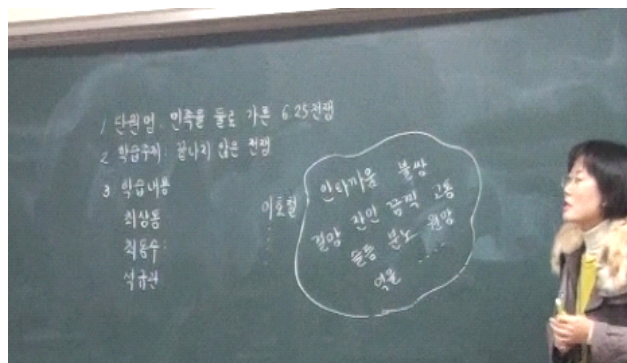 1. 단원명. 민족을 둘로 가른 6.25전쟁
2. 학습주제. 끝나지 않은 전쟁
3. 학습내용
최상동
최동수
석규관
이호철
안타까움 불쌍
절망 잔인 끔찍 고통
슬픔 분노 원망
억울